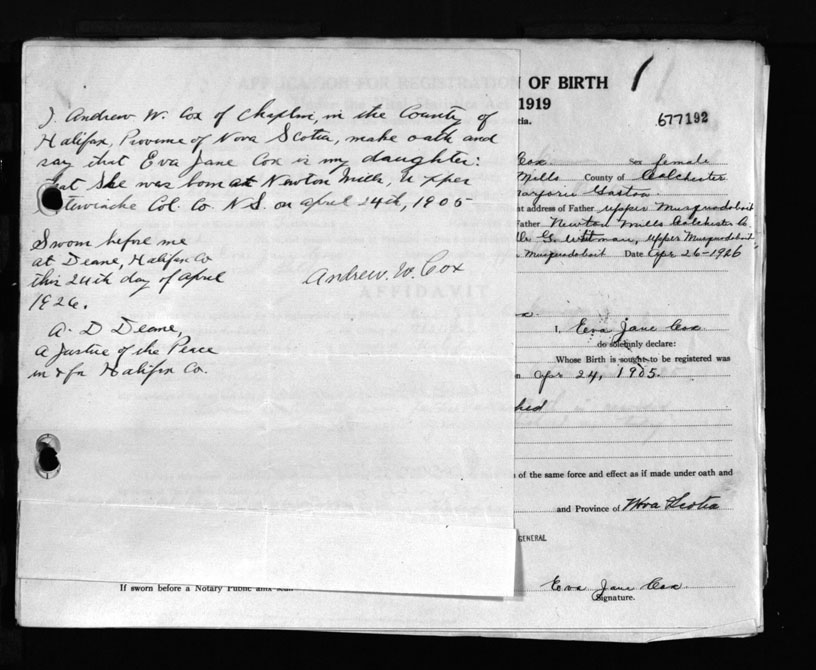 I Andrew W. Cox of Chaplin, in the County of
Halifax, Province of Nova Scotia, make oath and
say that Eva Jane Cox is my daughter:
that she was born at Newton Mills, Upper
Stewiacke Col. Co. N.S. on april 24th, 1905
Sworn before me
at Deane, Halifax Co
this 24th day of April
1926.
Andrew. W. Cox
A. D Deane,
a Justice of the Peace
in & for Halifax Co.
OF BIRTH
1919
677192
Cox Sex female
Mills County of Colchester
Marjorie Gaston
address of Father Upper Musquodoboit
Father Newton Mills Colchester
G. Whitman, Upper Musquodoboit
Musquodoboit Date Apr 26-1926
I, Eva Jane Cox
do solemnly declare:
Whose Birth is sought to be registered was
Apr 24, 1905.
of the same force and effect as if made under oath and
and Province of Nova Scotia
GENERAL
If sworn before a Notary Public affix seal
Eva Jane Cox
Signature.
AFFIDAVIT